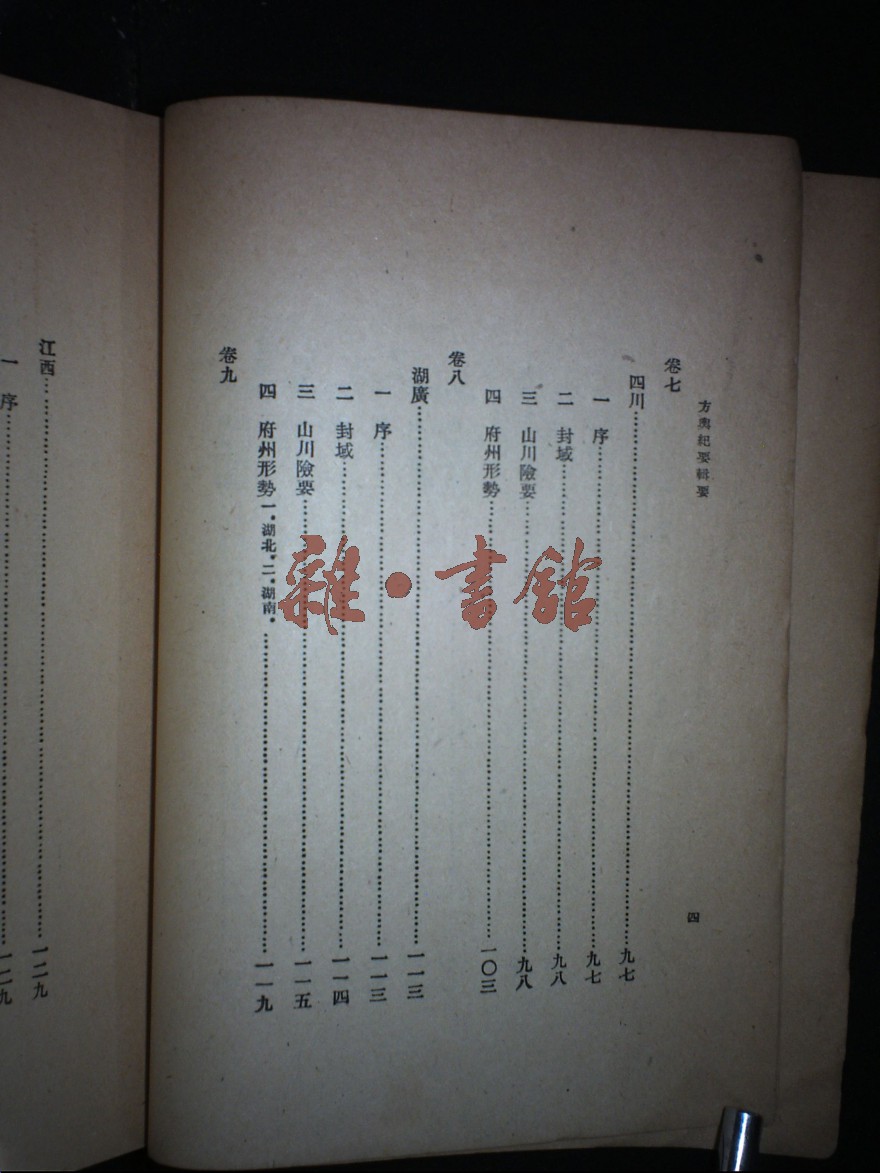 方輿紀要輯要
四
卷七
四川……九七
一 序……九七
二 封域……九八
三 山川險要……九八
四 府州形勢……一〇三
卷八
湖廣……一一三
一 序……一一三
二 封域……一一四
三 山川險要……一一五
四 府州形勢一.湖北.二.湖南.……一一九
卷九
江西……一二九
一 序……一二九
雜·書館